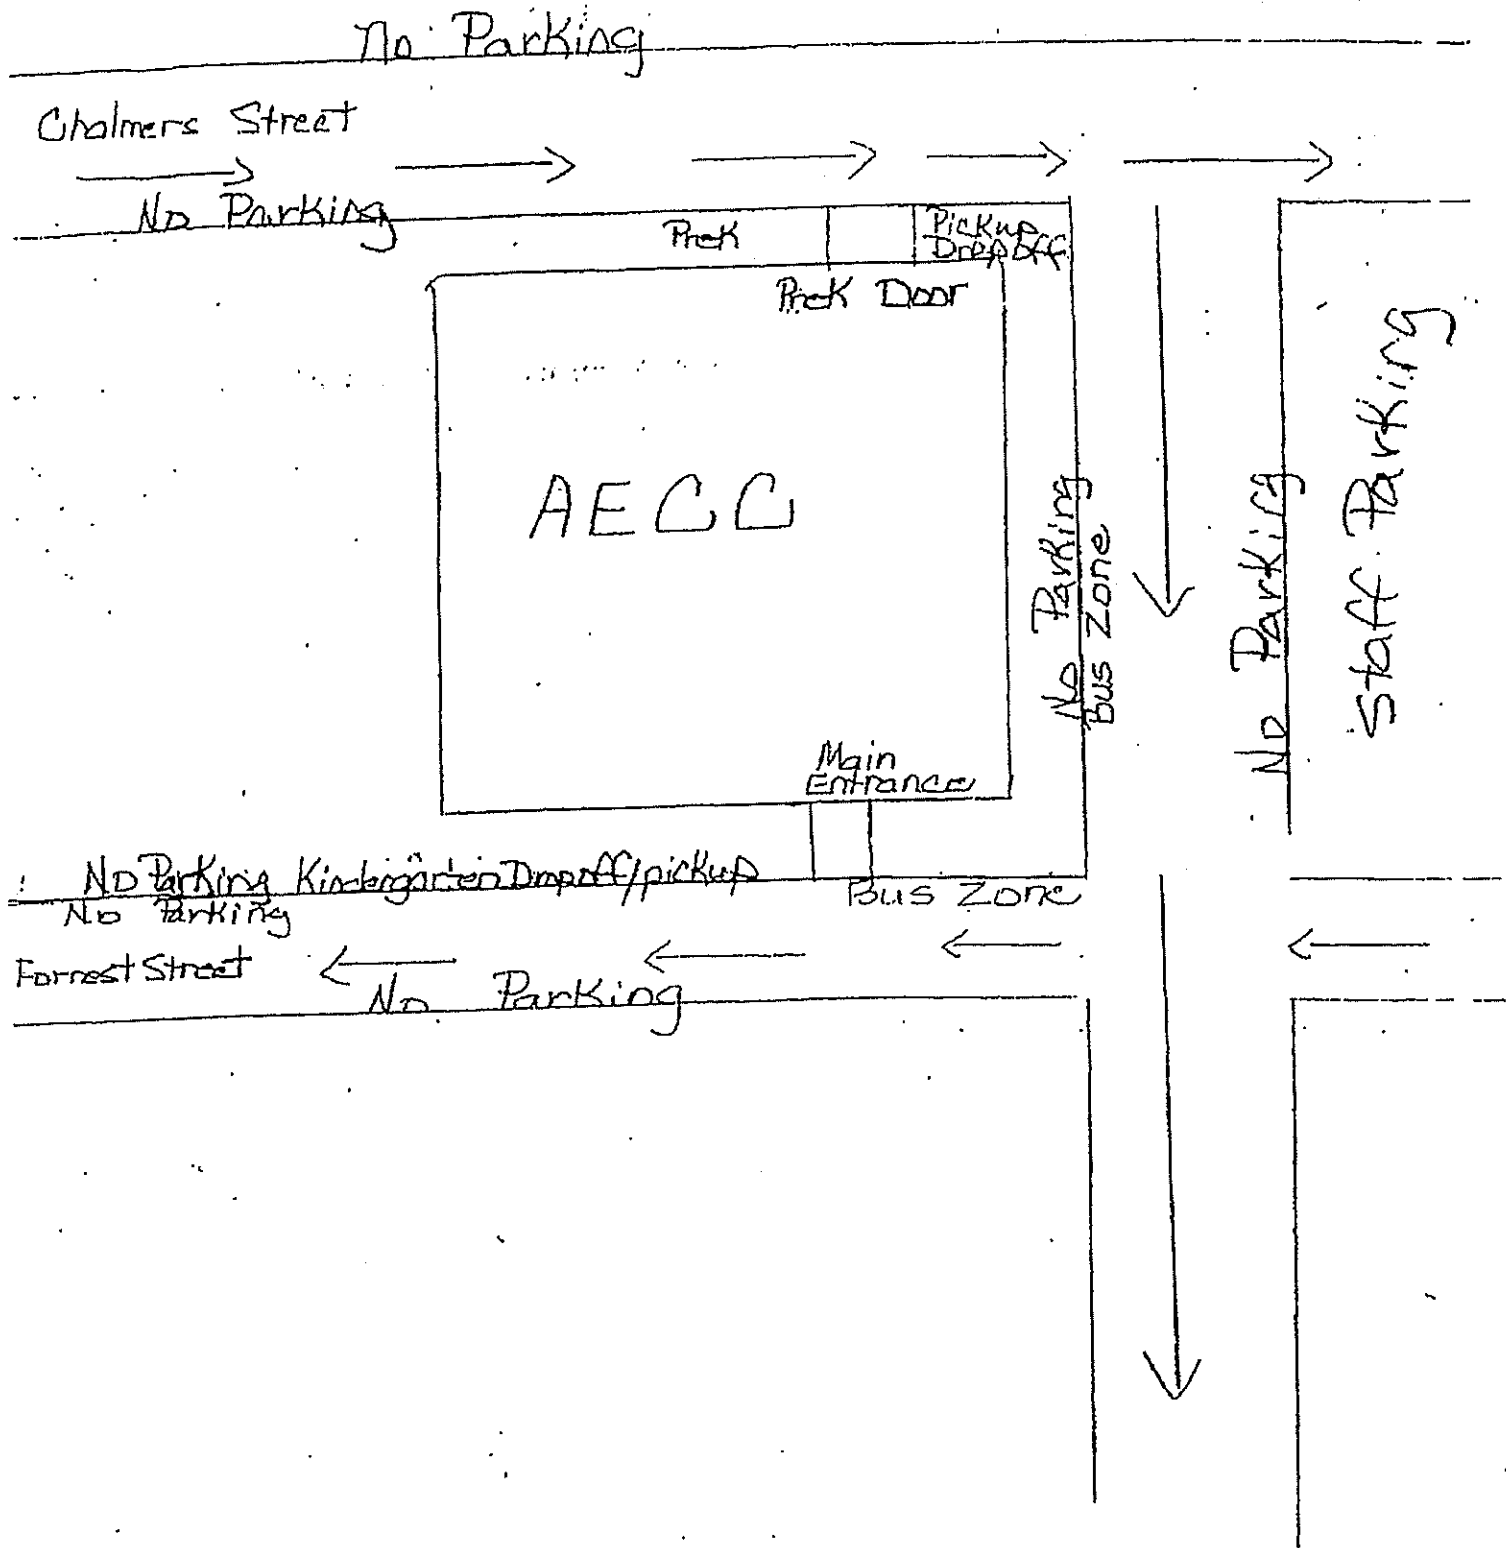 No Parking
Chalmers Street
No Parking
PreK
Pickup
Dropoff
PreK Door
AECC
No Parking
bus zone
No Parking
Staff Parking
Main
Entrance
No Parking Kindergarten Dropoff/pickup
No Parking
Bus Zone
Forrest Street
No Parking